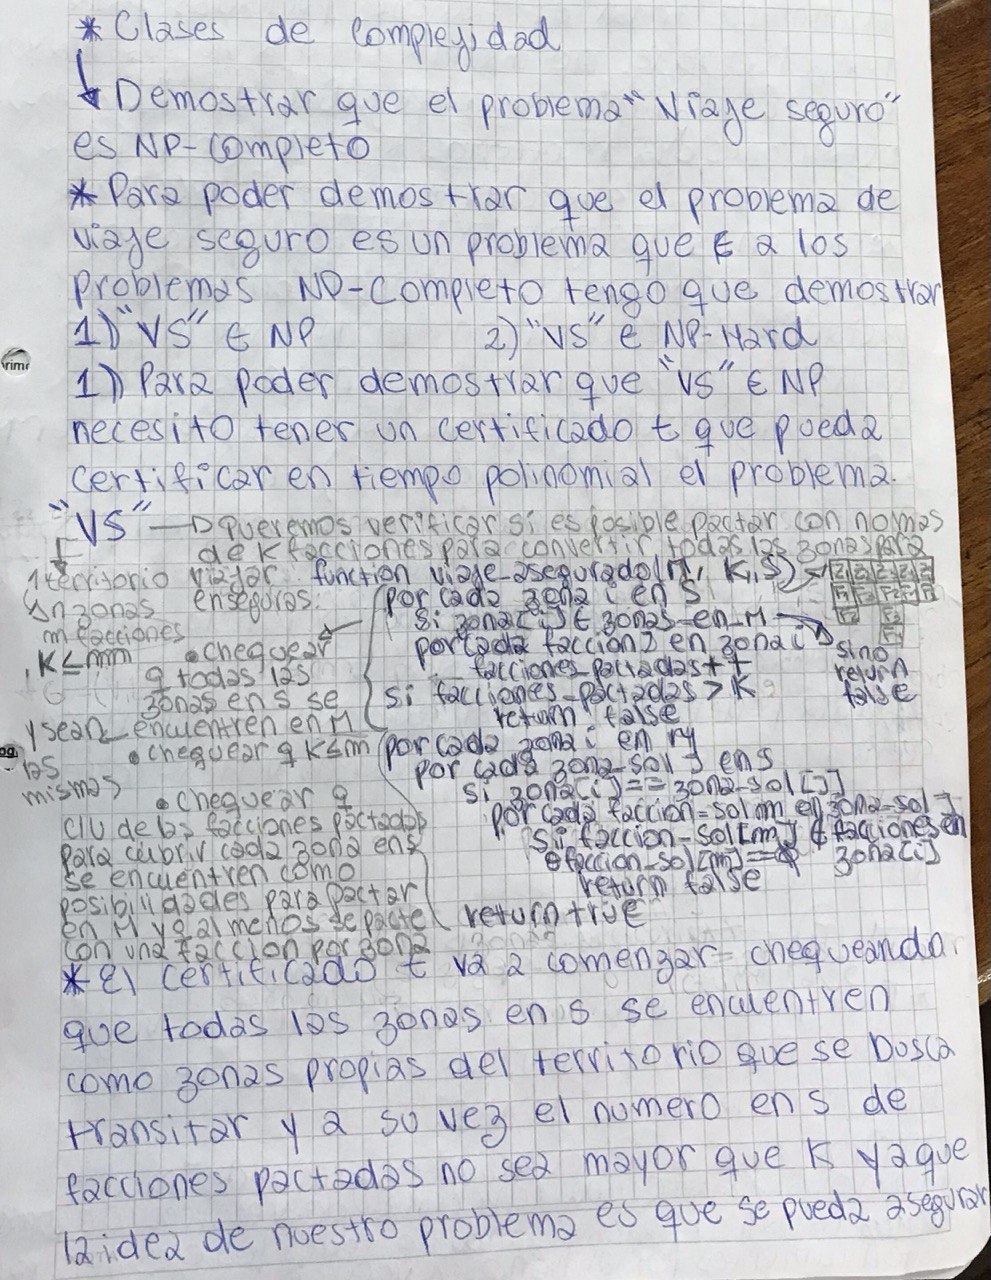 * Clases de complejidad
↳ Demostrar que el problema "Viaje seguro"
es NP-completo
* Para poder demostrar que el problema de
viaje seguro es un problema que ∈ a los
problemas NP-Completo tengo que demostrar
1) "VS" ∈ NP 2) "VS" ∈ NP-Hard
1) Para poder demostrar que "VS" ∈ NP
necesito tener un certificado t que pueda
certificar en tiempo polinomial el problema.
"VS" → queremos verificar si es posible pactar con no mas
de K facciones para convertir todas las zonas para
viajar en seguras.
1 territorio
n zonas
m facciones
K ≤ m
y sean las mismas
• chequear
q todas las
zonas en s se
encuentren en M
• chequear q K≤m
• chequear q
c/u de las facciones pactadas
para cubrir cada zona en s
se encuentren como
posibilidades para pactar
en M y q al menos se pacte
con una faccion por zona
function viaje-asegurado(M, K, S)
por cada zona i en S
si zona[i] ∈ zonas-en-M
sino
return
false
por cada faccion j en zona i
facciones-pactadas++
si facciones-pactadas > K
return false
por cada zona i en M
por cada zona-sol j en s
si zona[i] == zona-sol[j]
por cada faccion-sol m en zona-sol j
si faccion-sol[m] ∉ facciones en
zona[i]
faccion-sol[m] == ∅
return false
return true
* El certificado t va a comenzar chequeando
que todas las zonas en s se encuentren
como zonas propias del territorio que se busca
transitar y a su vez el numero en s de
facciones pactadas no sea mayor que K ya que
la idea de nuestro problema es que se pueda asegurar